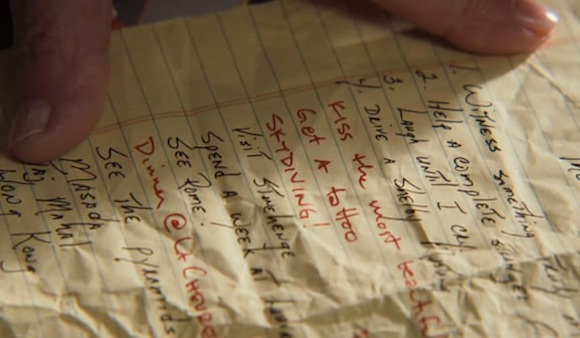 1. Witness something
2. Help a complete
3. Laugh until I cry
4. Drive a Shelby
Kiss the most beautiful
Get A tattoo
SKYDIVING!
Visit Stonehenge
Spend a week at
See Rome!
Dinner @ La
See The pyramids
Masada
Taj Mahal
Hong Kong